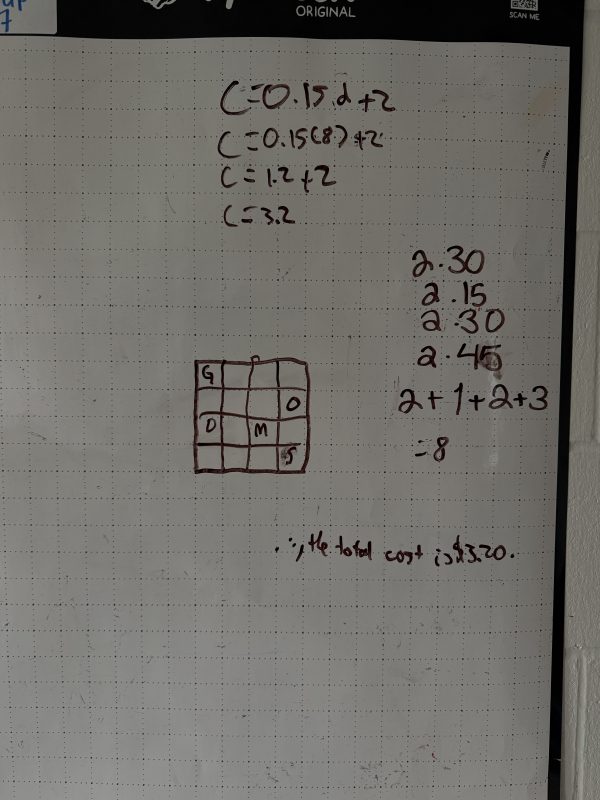 7
ORIGINAL
SCAN ME
C=0.15d+2
C=0.15(8)+2
C=1.2+2
C=3.2
2.30
2.15
2.30
2.45
2+1+2+3
=8
G
O
D M
S
∴, the total cost is $3.20.